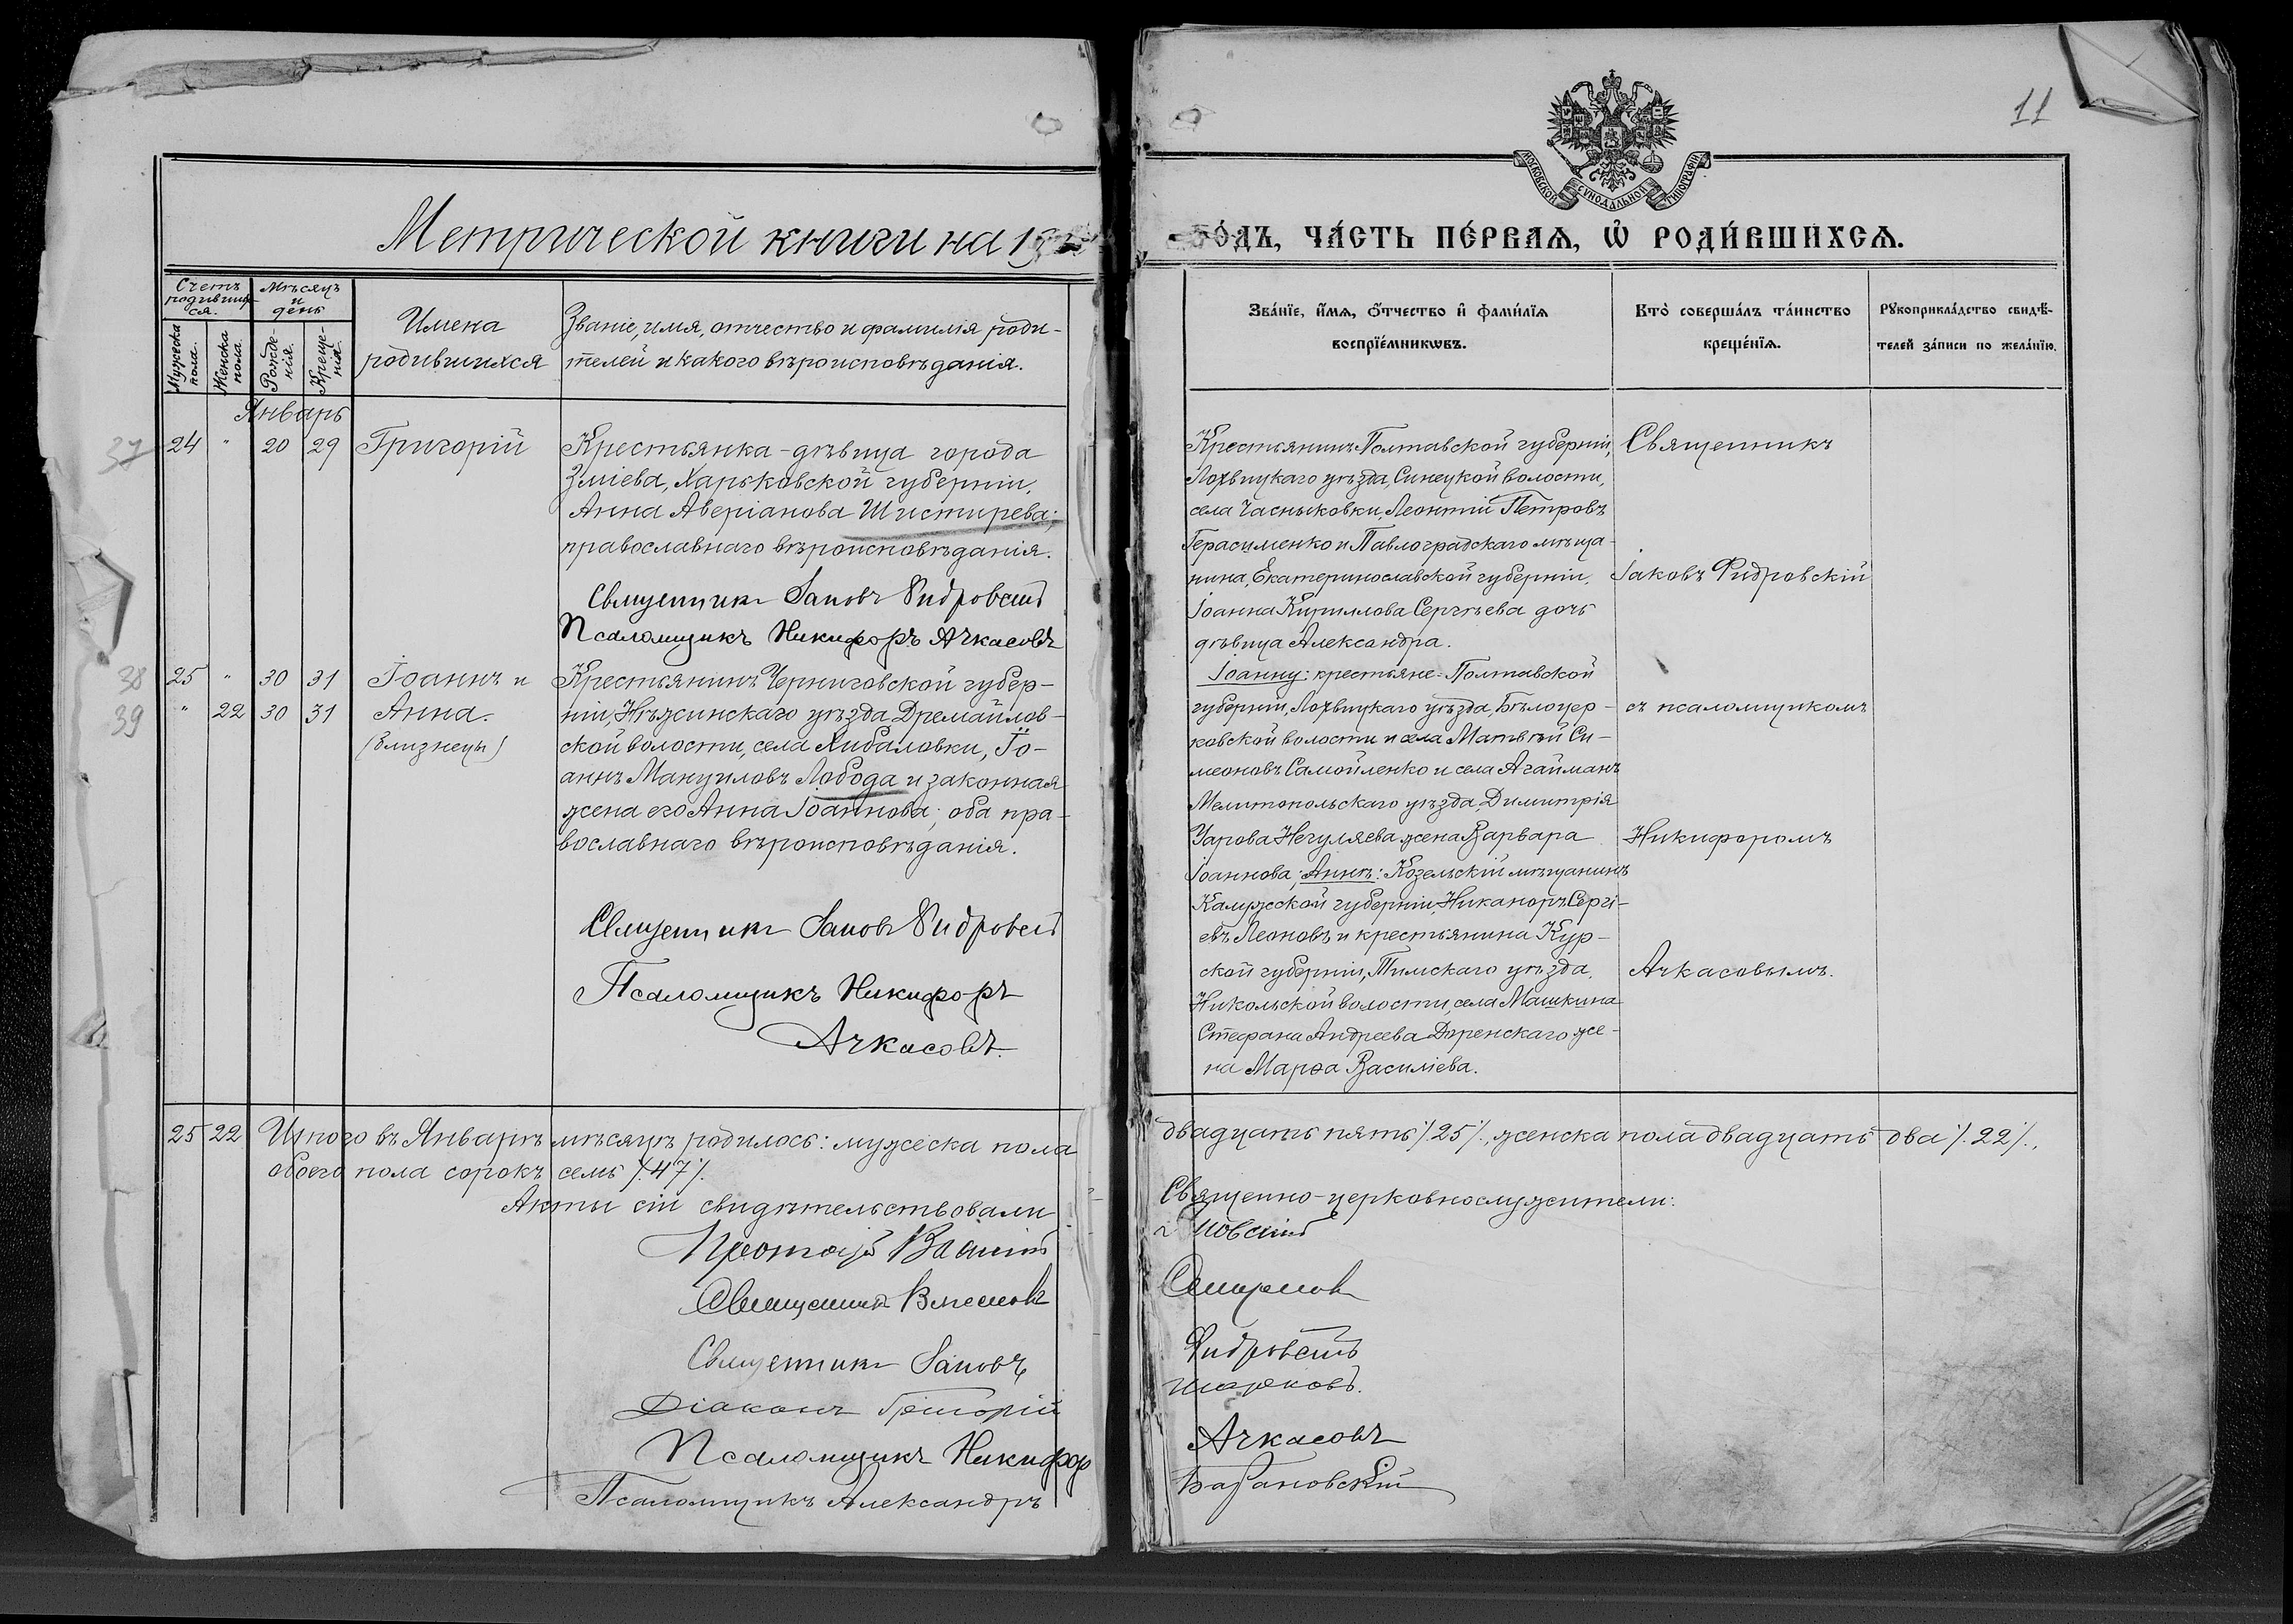 11
МОСКОВСКОЙ СѴНОДАЛЬНОЙ ТИПОГРАФІИ
Метрической книги на 19
го́дъ, ча́сть пе́рваѧ, ѡ҆ роди́вшихсѧ.
Счетъ родившихся.
Мужеска пола.
Женска пола.
Мѣсяцъ и день
Рожденія.
Крещенія.
Имена
родившихся
Званіе, имя, отчество и фамилія роди-
телей и какого вѣроисповѣданія.
Зва́нїе, и҆́мѧ, ѻ҆́тчество и҆ фами́лїѧ
воспрїе́мникѡвъ.
Кто̀ соверша́лъ та́инство
креще́нїѧ.
Рꙋкоприкла́дство свидѣ́-
телей за́писи по жела́нїю.
Январь
37 24 " 20 29 Григорій
Крестьянка-дѣвица города
Зміева, Харьковской губерніи,
Анна Аверіанова Шистирева;
православнаго вѣроисповѣданія.
Священникъ Іаковъ Ѳидровскій
Псаломщикъ Никифоръ Ачкасовъ
Крестьянинъ Полтавской губерніи,
Лохвицкаго уѣзда, Синецкой волости,
села Часныковки, Леонтій Петровъ
Герасименко и Павлоградскаго мѣща-
нина, Екатеринославской губерніи,
Іоанна Кириллова Сергѣева дочь
дѣвица Александра.
Священникъ
Іаковъ Ѳидровскій
38 25 " 30 31 Іоаннъ и
39 " 22 30 31 Анна.
(близнецы)
Крестьянинъ Черниговской губер-
ніи, Нѣжинскаго уѣзда, Дремайлов-
ской волости, села Хибаловки, Іо-
аннъ Мануиловъ Лобода и законная
жена его Анна Іоаннова; оба пра-
вославнаго вѣроисповѣданія.
Священникъ Іаковъ Ѳидровскій
Псаломщикъ Никифоръ
Ачкасовъ.
Іоанну: крестьяне-Полтавской
губерніи, Лохвицкаго уѣзда, Бѣлоцер-
ковской волости и села Матвѣй Си-
меоновъ Самойленко и села Агайманъ
Мелитопольскаго уѣзда, Димитрія
Уарова Негуляева жена Варвара
Іоаннова; Аннѣ: Козельскій мѣщанинъ
Калужской губерніи, Никаноръ Сергі-
евъ Леоновъ и крестьянина Кур-
ской губерніи, Тимскаго уѣзда,
Никольской волости, села Машкина
Стефана Андреева Доренскаго же-
на Марѳа Василіева.
съ псаломщикомъ
Никифоромъ
Ачкасовымъ.
25 22 Итого въ Январѣ мѣсяцѣ родилось: мужеска пола двадцать пять /.25/., женска пола двадцать два /.22/.,
обоего пола сорокъ семь /.47/.
Акты сіи свидѣтельствовали Священно-церковнослужители:
Протоіерей Василій
Священникъ Смирновъ
Священникъ Іаковъ Ѳидровскій
Діаконъ Григорій
Псаломщикъ Никифоръ Ачкасовъ
Псаломщикъ Александръ Барановскій